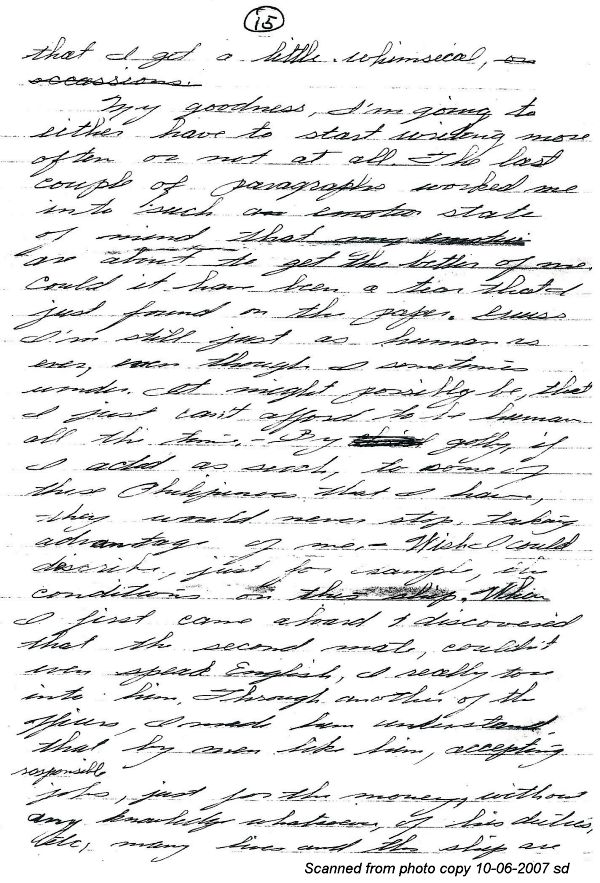 15
that I get a little whimsical, on
occassions.
My goodness, I'm going to
either have to start writing more
often or not at all. The last
couple of paragraphs worked me
into such an emotion state
of mind that my emotion
are about to get the better of me.
Could it have been a tear that I
just found on the paper. Guess
I'm still just as human as
ever, even though I sometimes
wonder. It might possibly be, that
I just can't afford to be human
all the time. - By golly, if
I acted as such, to some of
these Philipinos that I have,
they would never stop taking
advantage of me. - Wish I could
discribe, just for sample, the
conditions on this ship. When
I first came aboard & discovered
that the second mate, couldn't
even speak English, I really tore
into him. Through another of the
officers, I made him understand,
that by men like him, accepting
responsible
jobs, just for the money, without
any knowledge whatsoever, of his duties,
etc, many lives and the ship are
Scanned from photo copy 10-06-2007 sd